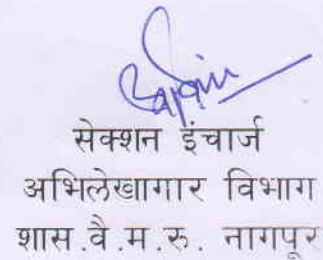 सेक्शन इंचार्ज
अभिलेखागार विभाग
शास.वै.म.रु. नागपूर